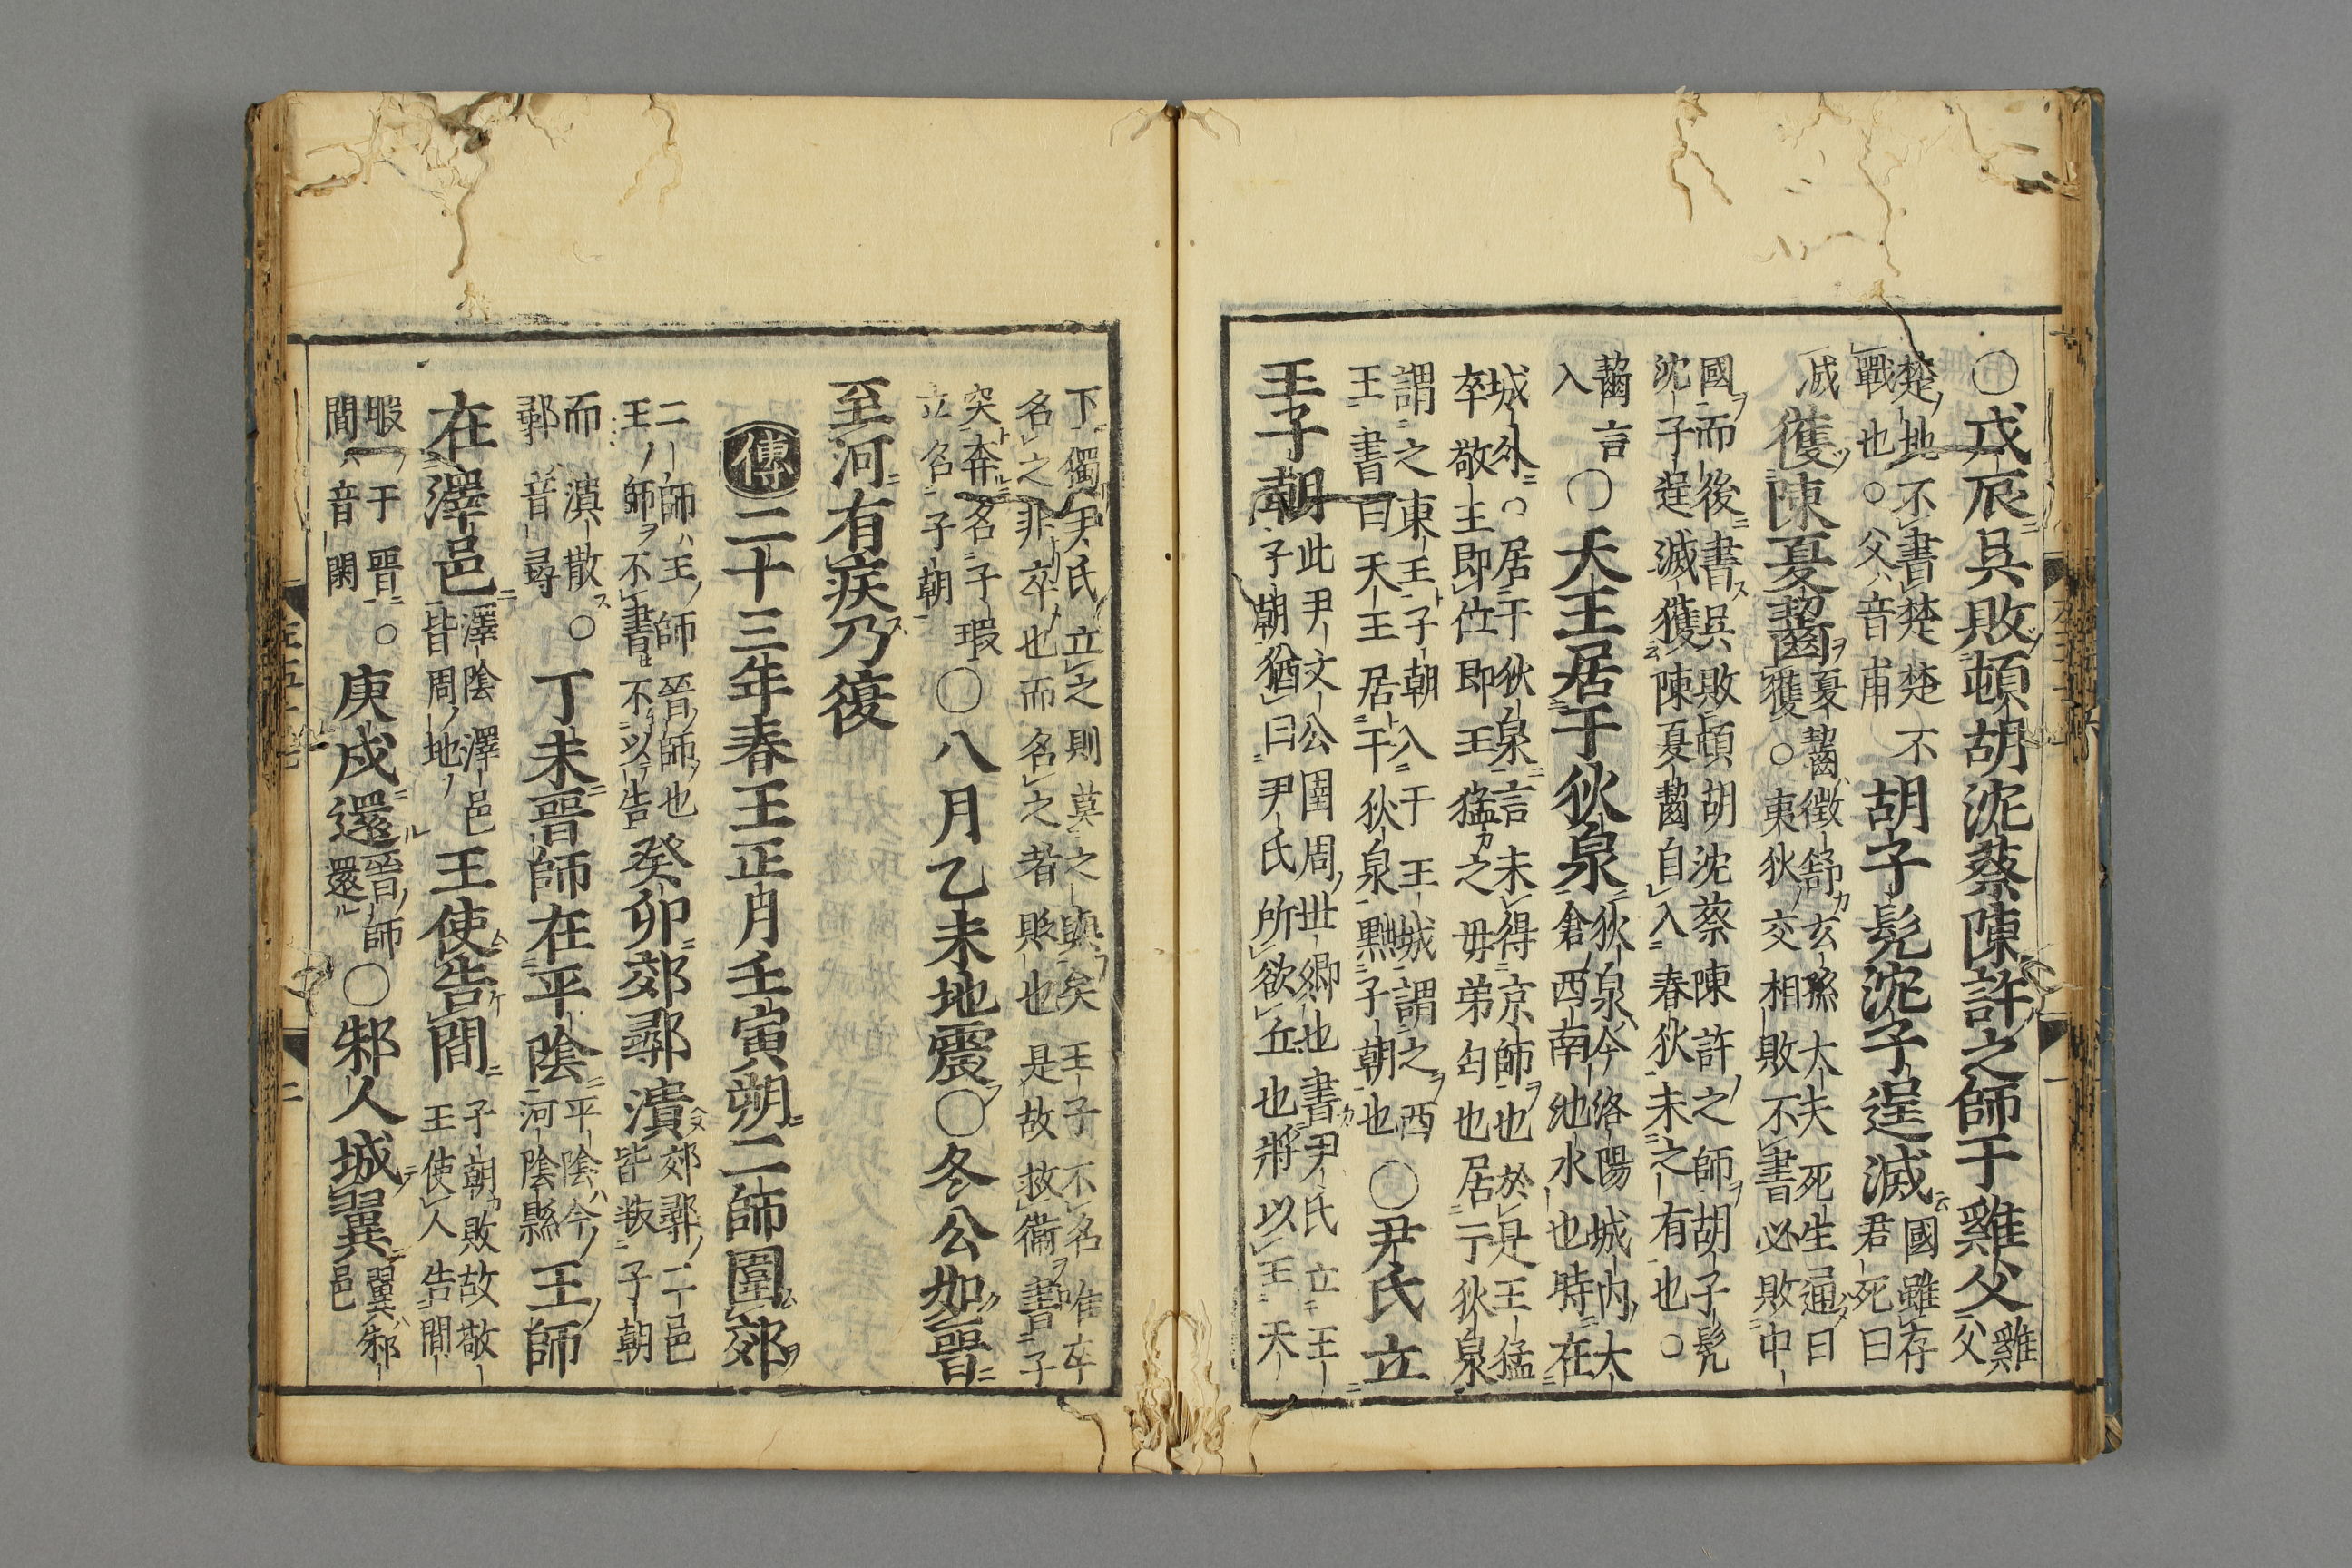 ○戊辰吳敗頓胡沈蔡陳許之師于雞父雞父
楚地不書楚楚不戰也○父音甫胡子髠沈子逞滅國雖存君死曰
滅獲陳夏齧夏齧徵舒玄孫大夫死生通曰獲○夷狄交相敗不書必敗中
國而後書吳敗頓胡沈蔡陳許之師胡子髠沈子逞滅獲陳夏齧自入春狄未之有也○
齧言入○天王居于狄泉狄泉今洛陽城内大倉西南池水也時在
城外○居于狄泉言未得京師也於是王猛卒敬王即位即王猛之毋弟匄也居于狄泉
謂之東王子朝入于王城謂之西王書曰天王居于狄泉黜子朝也○尹氏立
王子朝此尹文公圉周世卿也書尹氏立王子朝猶曰尹氏所欲立也將以王天
下獨尹氏立之則莫之與矣王子不名唯卒名之非卒也而名之者貶也是故救衛書子
突奔名子瑕立名子朝○八月乙未地震○冬公如晉
至河有疾乃復
傳二十三年春王正月壬寅朔二師圍郊
二師王師晉師也王師不書不以告癸卯郊鄩潰郊鄩二邑皆叛子朝
而潰散○鄩音尋丁未晉師在平陰平陰今河陰縣王師
在澤邑澤陰澤邑皆周地王使告間子朝敗故敬王使人告間
暇于晉○間音閑庚戌還晉師還○邾人城翼翼邾邑